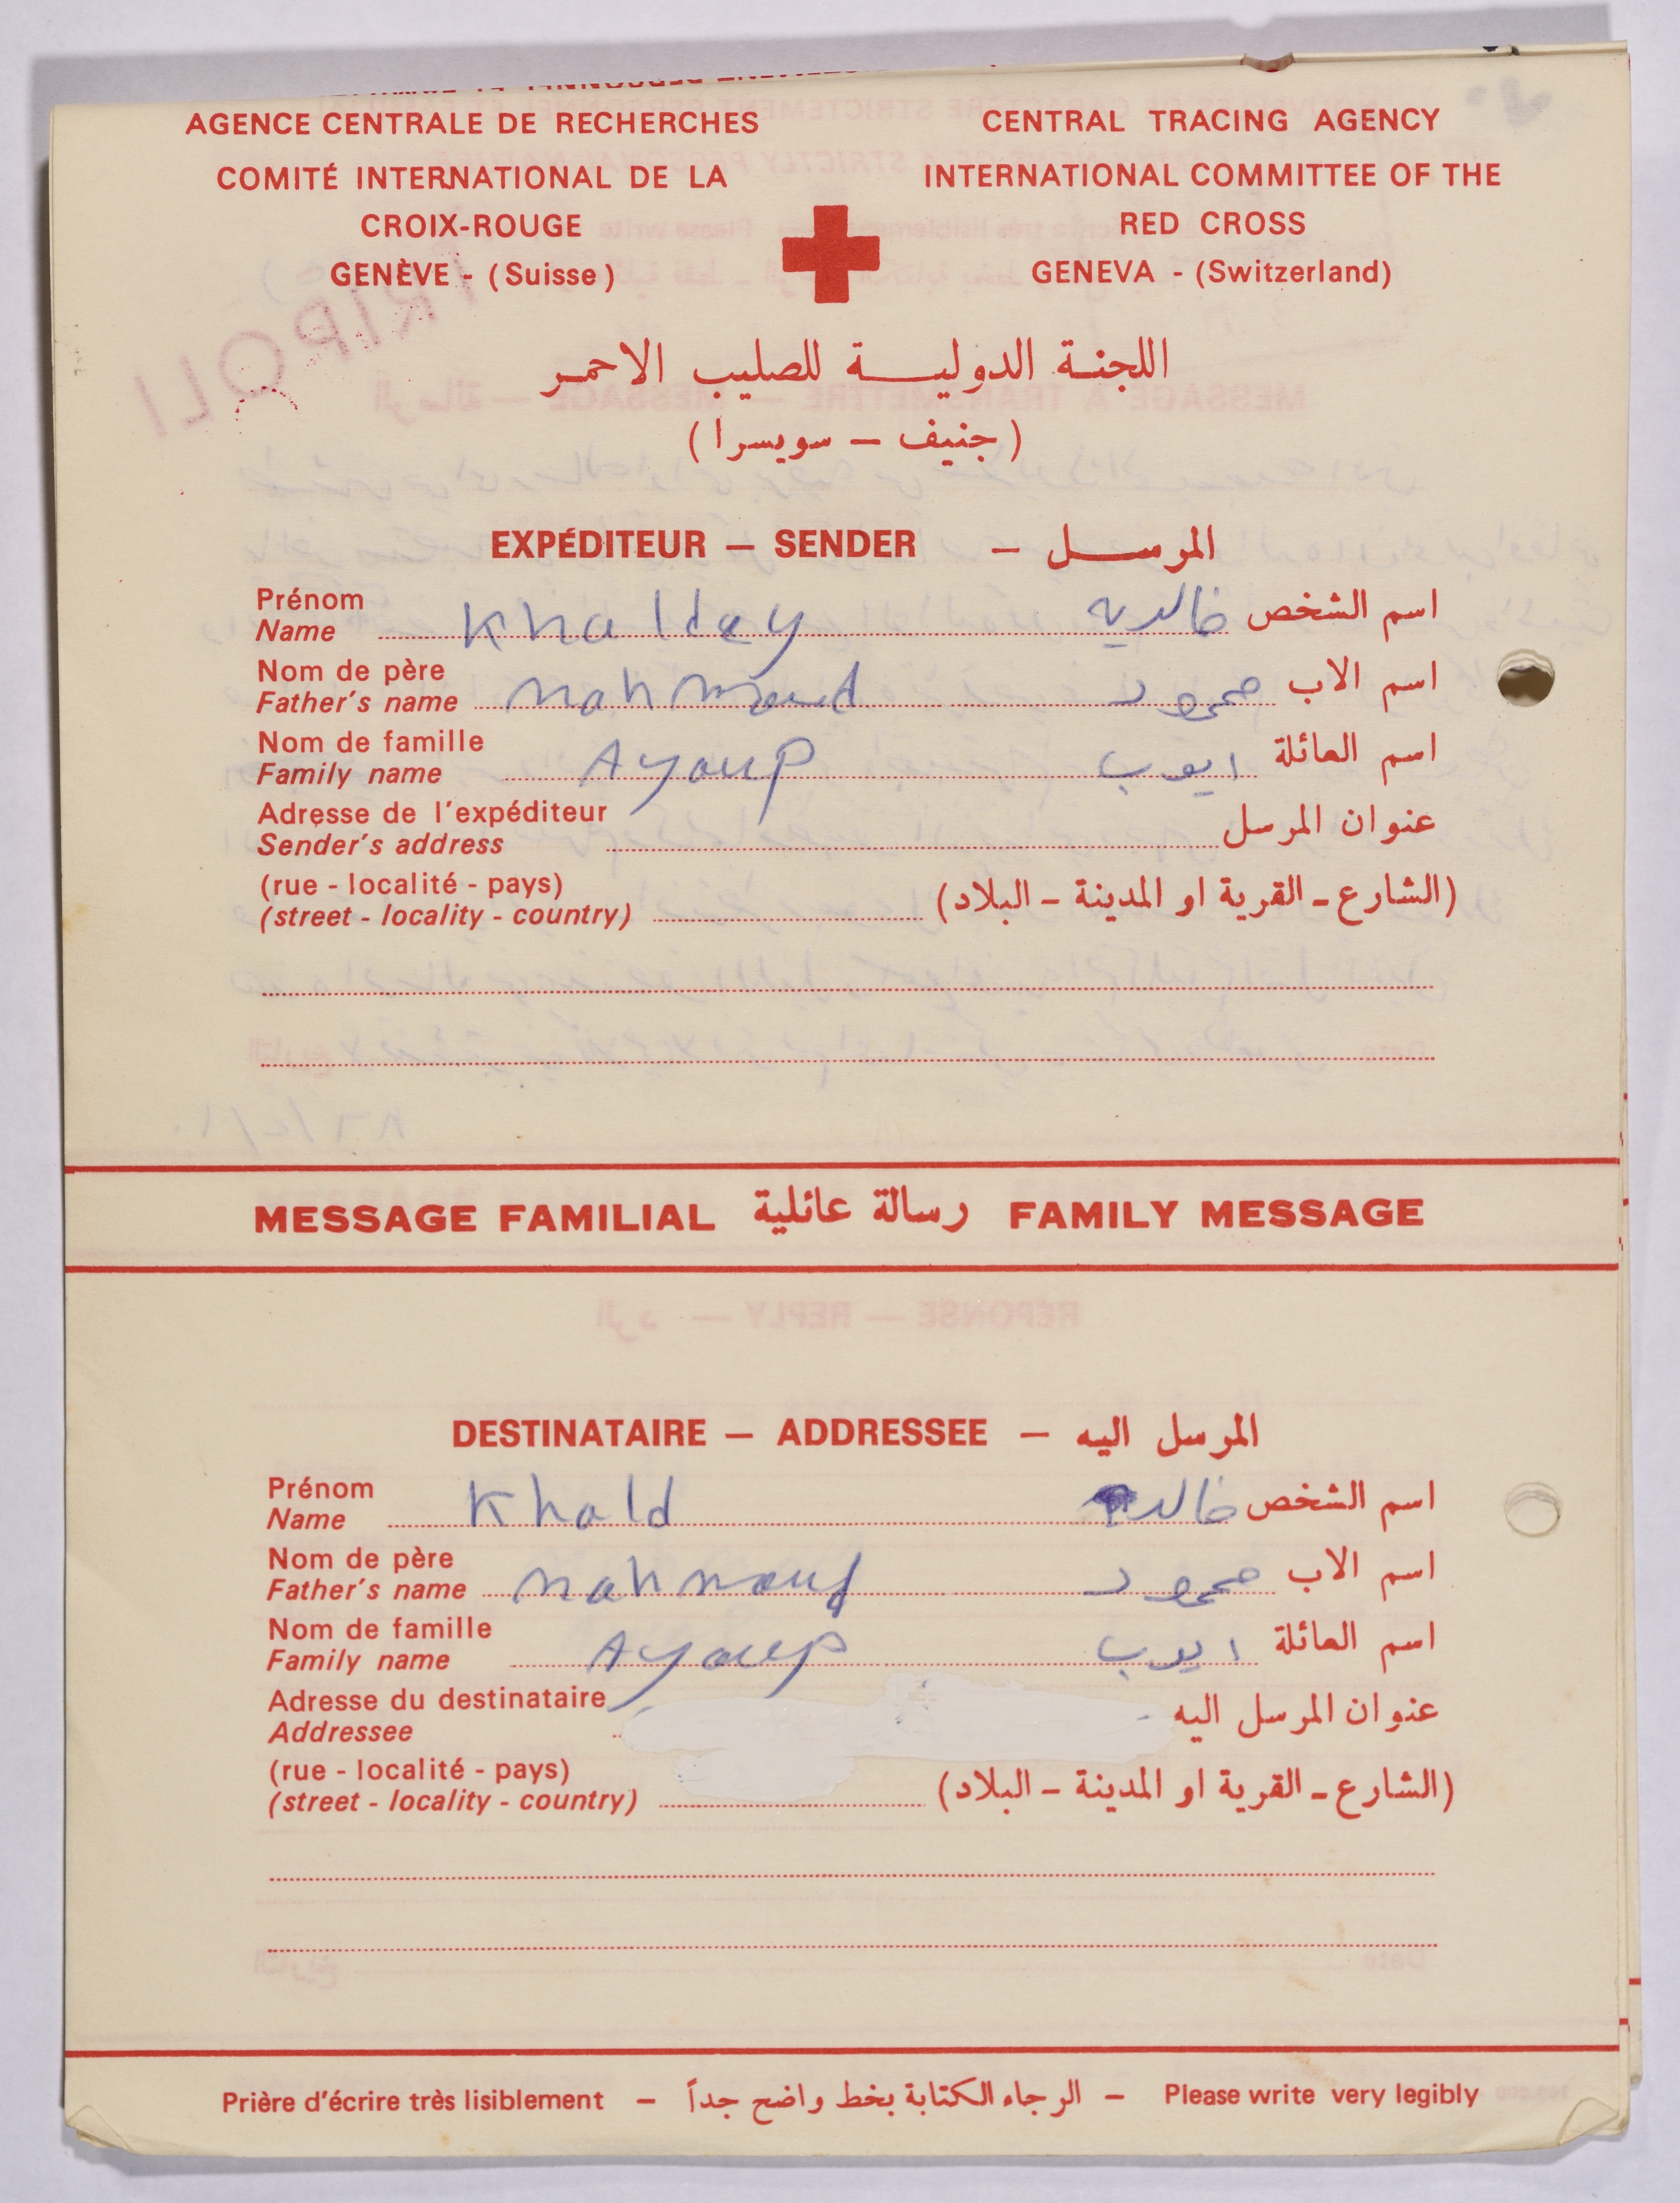 AGENCE CENTRALE DE RECHERCHES
COMITÉ INTERNATIONAL DE LA
CROIX-ROUGE
GENÈVE - (Suisse)
CENTRAL TRACING AGENCY
INTERNATIONAL COMMITTEE OF THE
RED CROSS
GENEVA - (Switzerland)
TRIPOLI
اللجنة الدولية للصليب الاحمر
(جنيف – سويسرا)
EXPÉDITEUR – SENDER – المرسل
Prénom
Name Khalday خالديه اسم الشخص
Nom de père
Father's name mahmoud محمود اسم الاب
Nom de famille
Family name Ayoup ايوب اسم العائلة
Adresse de l'expéditeur
Sender's address عنوان المرسل
(rue - localité - pays)
(street - locality - country) (الشارع - القرية او المدينة - البلاد)
MESSAGE FAMILIAL رسالة عائلية FAMILY MESSAGE
DESTINATAIRE – ADDRESSEE – المرسل اليه
Prénom
Name Khald خالد اسم الشخص
Nom de père
Father's name mahmoud محمود اسم الاب
Nom de famille
Family name Ayoup ايوب اسم العائلة
Adresse du destinataire
Addressee عنوان المرسل اليه
(rue - localité - pays)
(street - locality - country) (الشارع - القرية او المدينة - البلاد)
Prière d'écrire très lisiblement – الرجاء الكتابة بخط واضح جداً – Please write very legibly